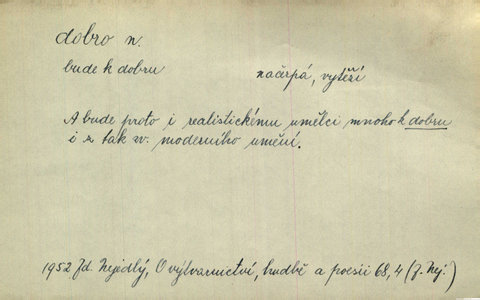 dobro n.
bude k dobru načerpá, vytěží
A bude proto i realistickému umělci mnoho k dobru
i z tak zv. moderního umění.
1952 Zd. Nejedlý, O výtvarnictví, hudbě a poesii 68, 4 (Z. Nej.)